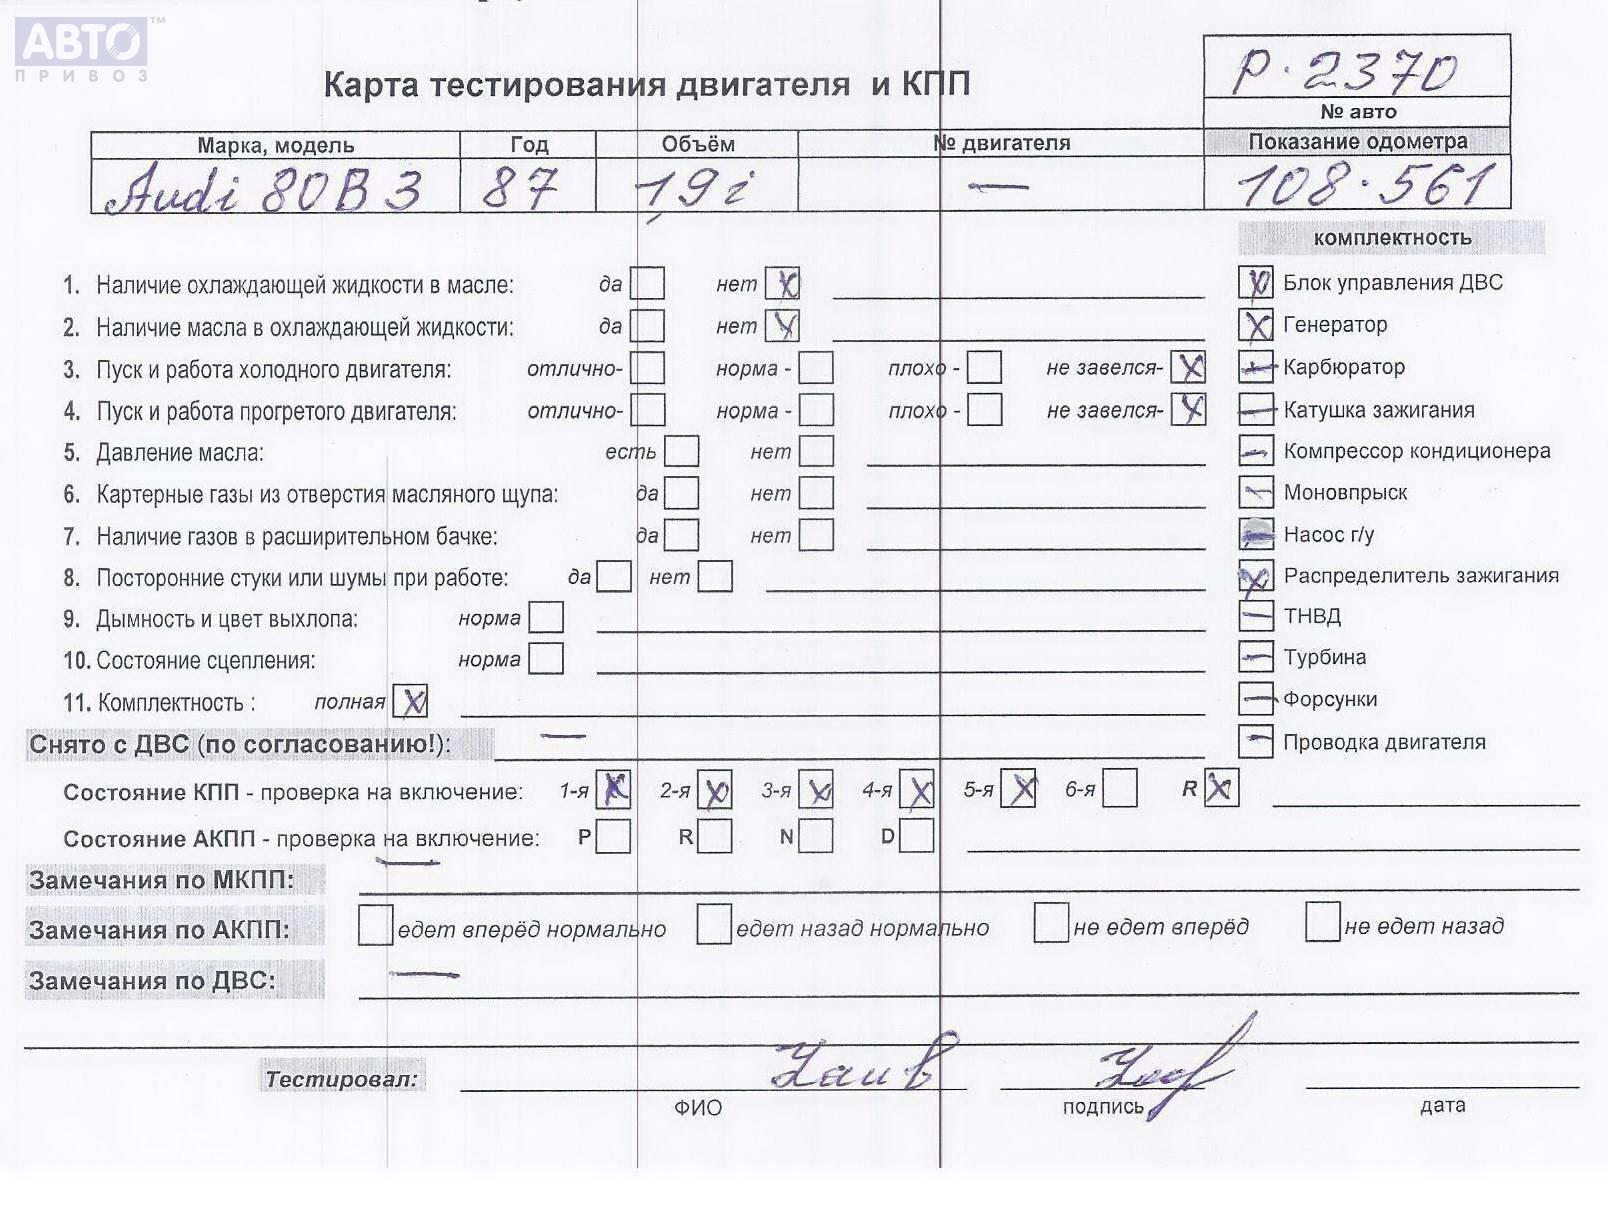 АВТО™
ПРИВОЗ
Карта тестирования двигателя и КПП
P·2370
№ авто
Марка, модель Год Объём № двигателя Показание одометра
Audi 80B3 87 1,9i — 108·561
комплектность
1. Наличие охлаждающей жидкости в масле: да нет X
2. Наличие масла в охлаждающей жидкости: да нет X
3. Пуск и работа холодного двигателя: отлично- норма - плохо - не завелся- X
4. Пуск и работа прогретого двигателя: отлично- норма - плохо - не завелся- X
5. Давление масла: есть нет
6. Картерные газы из отверстия масляного щупа: да нет
7. Наличие газов в расширительном бачке: да нет
8. Посторонние стуки или шумы при работе: да нет
9. Дымность и цвет выхлопа: норма
10. Состояние сцепления: норма
11. Комплектность : полная X
X Блок управления ДВС
X Генератор
— Карбюратор
— Катушка зажигания
— Компрессор кондиционера
— Моновпрыск
Насос г/у
X Распределитель зажигания
— ТНВД
— Турбина
— Форсунки
— Проводка двигателя
Снято с ДВС (по согласованию!): —
Состояние КПП - проверка на включение: 1-я X 2-я X 3-я X 4-я X 5-я X 6-я R X
Состояние АКПП - проверка на включение: P R N D
Замечания по МКПП: —
Замечания по АКПП: едет вперёд нормально едет назад нормально не едет вперёд не едет назад
Замечания по ДВС: —
Тестировал:
ФИО подпись дата